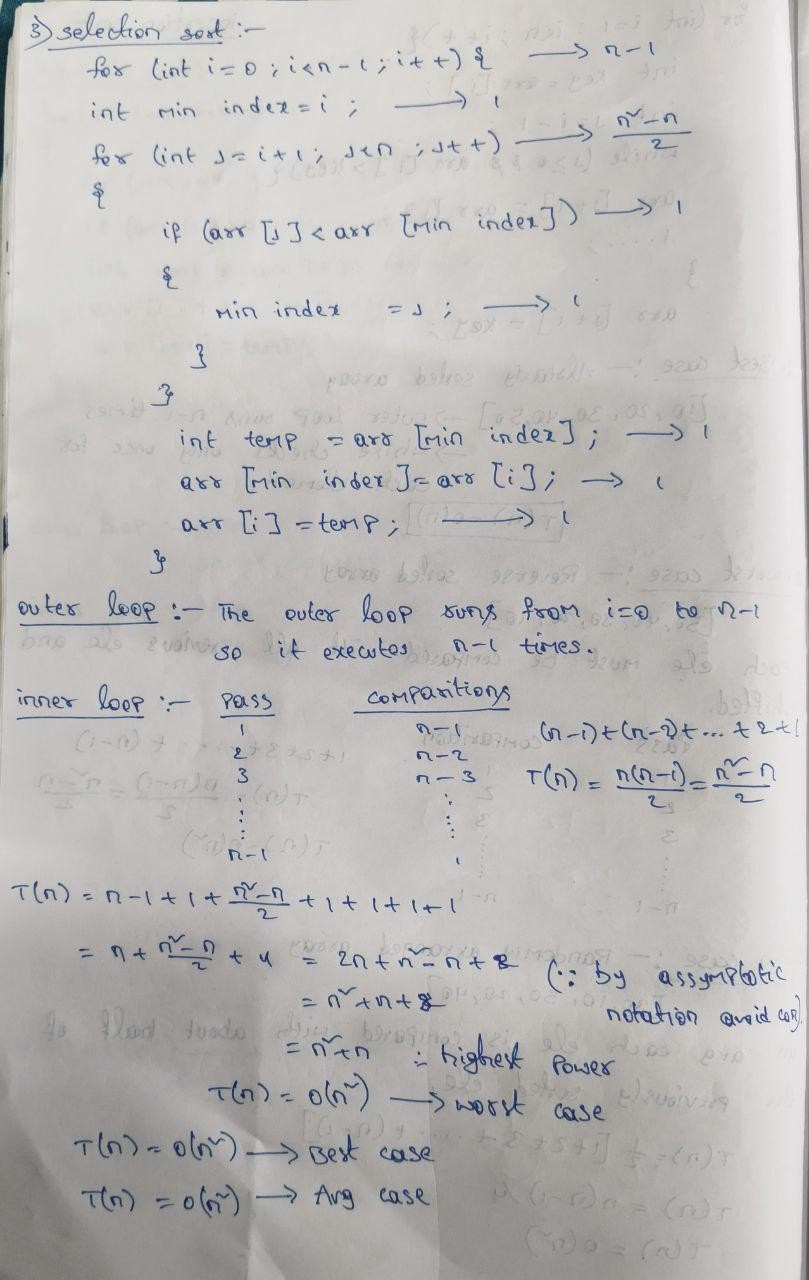 3) selection sort :-
for (int i=0 ; i<n-1 ; i++) { → n-1
int min index = i ; → 1
for (int j=i+1 ; j<n ; j++) → n²-n/2
{
if (arr [j] < arr [min index]) → 1
{
min index = j ; → 1
}
}
int temp = arr [min index] ; → 1
arr [min index] = arr [i] ; → 1
arr [i] = temp ; → 1
}
outer loop :- The outer loop runs from i=0 to n-1
so it executes n-1 times.
inner loop :- pass comparitions
1 n-1 (n-1)+(n-2)+...+2+1
2 n-2
3 n-3 T(n) = n(n-1)/2 = n²-n/2
n-1 1
T(n) = n-1+1+n²-n/2+1+1+1+1
= n+n²-n/2+4 = 2n+n²-n+8 (∵ by assymptotic
= n²+n+8 notation avoid
= n²+n ∴ highest power
T(n) = O(n²) → worst case
T(n) = O(n²) → Best case
T(n) = O(n²) → Avg case